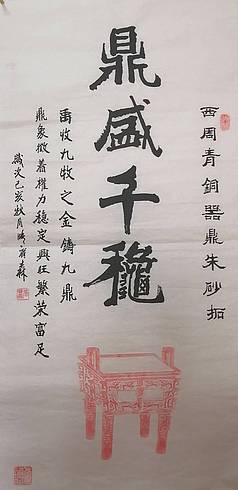 西周青銅器鼎朱砂拓
鼎盛千穐
禹收九牧之金鑄九鼎
鼎象徵著權力穩定興旺繁荣富足
歲次己亥秋月